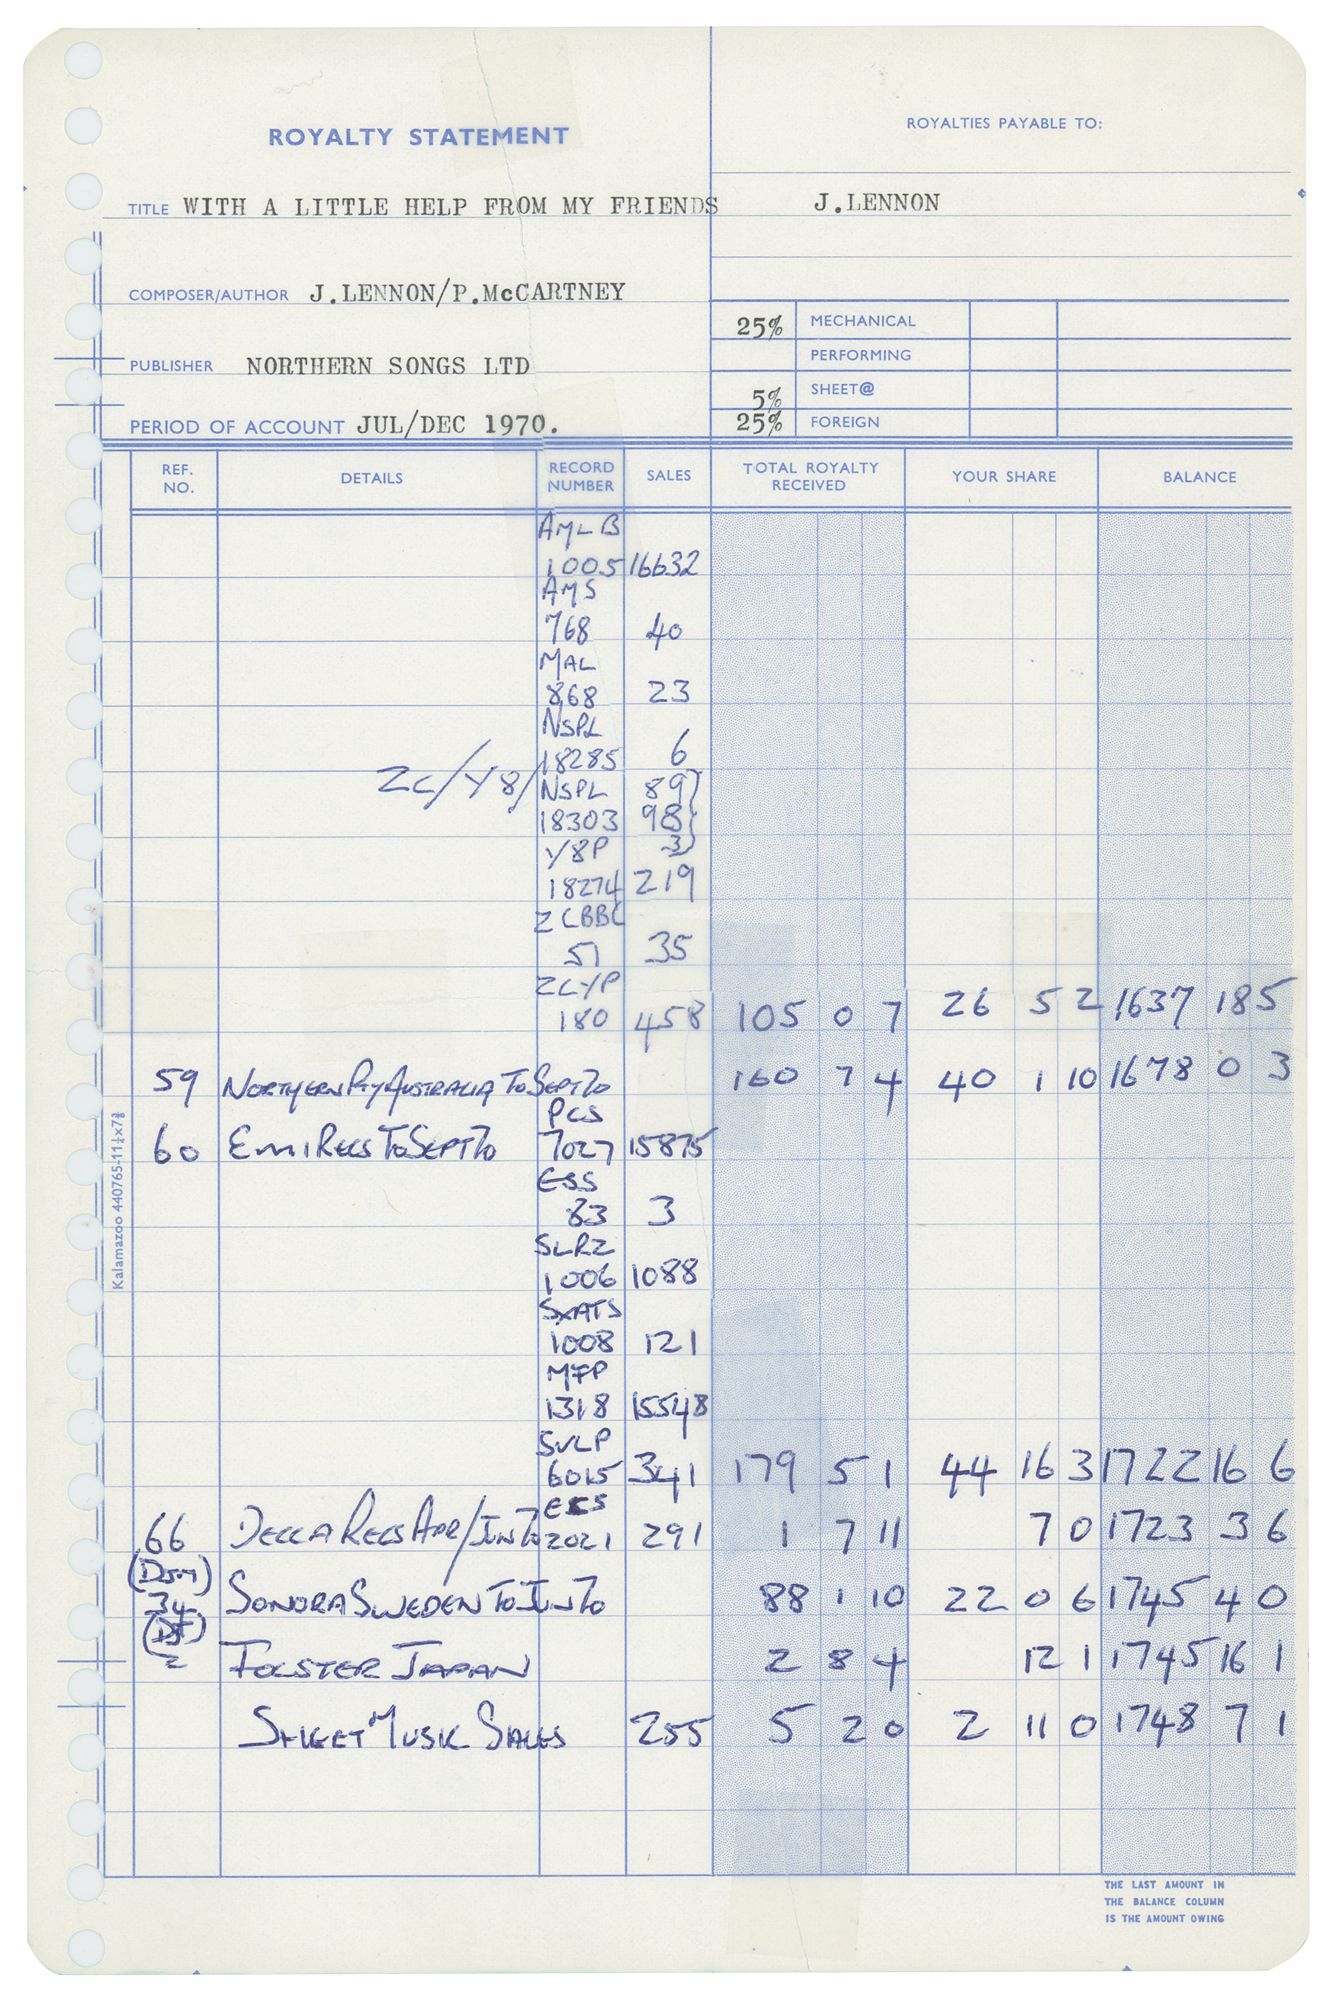 ROYALTY STATEMENT
ROYALTIES PAYABLE TO:
TITLE WITH A LITTLE HELP FROM MY FRIENDS
J.LENNON
COMPOSER/AUTHOR J.LENNON/P.McCARTNEY
25% MECHANICAL
PERFORMING
PUBLISHER NORTHERN SONGS LTD
5% SHEET@
PERIOD OF ACCOUNT JUL/DEC 1970.
25% FOREIGN
REF. NO. DETAILS RECORD NUMBER SALES TOTAL ROYALTY RECEIVED YOUR SHARE BALANCE
AMLB
1005 16632
AMS
768 40
MAL
868 23
NSPL
18285 6
ZC/Y8/ NSPL 89
18303 98
Y8P 3
18274 219
ZCBBC
51 35
ZCYP
180 458 105 0 7 26 5 2 1637 18 5
59 NORTHERN PTY AUSTRALIA TO SEPT 70 160 7 4 40 1 10 1678 0 3
PCS
60 EMI RECS TO SEPT 70 7027 15875
ESS
83 3
SLRZ
1006 1088
SXATS
1008 121
MFP
1318 15548
SVLP
6015 341 179 5 1 44 16 3 1722 16 6
66 DECCA RECS APR/JUN 70 2021 291 1 7 11 7 0 1723 3 6
(DJM)
34 SONORA SWEDEN TO JUN 70 88 1 10 22 0 6 1745 4 0
2 FOLSTER JAPAN 2 8 4 12 1 1745 16 1
SHEET MUSIC SALES 255 5 2 0 2 11 0 1748 7 1
Kalamazoo 440765-11¼x7⅜
THE LAST AMOUNT IN
THE BALANCE COLUMN
IS THE AMOUNT OWING